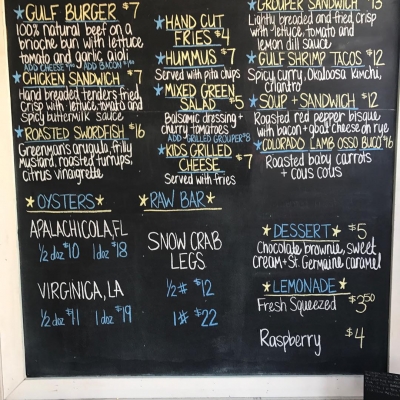 ★GULF BURGER $7
100% natural beef on a
brioche bun with lettuce
tomato and garlic aioli
ADD CHEESE ADD BACON
★CHICKEN SANDWICH $7
Hand breaded tenders fried
crisp with lettuce, tomato and
Spicy buttermilk sauce
★ROASTED SWORDFISH $16
Greenman's arugula, frilly
mustard, roasted turnups,
citrus vinaigrette
★HAND CUT
FRIES $4
★HUMMUS $7
Served with pita chips
★MIXED GREEN
SALAD $5
Balsamic dressing +
cherry tomatoes
ADD GRILLED GROUPER $8
★KIDS GRILLED
CHEESE $7
Served with fries
GROUPER SANDWICH $13
Lightly breaded and fried, crisp
with lettuce, tomato and
lemon dill sauce
★GULF SHRIMP TACOS $12
Spicy curry, Okaloosa kimchi,
cilantro
★SOUP + SANDWICH $12
Roasted red pepper bisque
with bacon + goat cheese on rye
★COLORADO LAMB OSSO BUCO $16
Roasted baby carrots
+ cous cous
★OYSTERS★
APALACHICOLA, FL
1/2 doz $10 1 doz $18
VIRGINICA, LA
1/2 doz $11 1 doz $19
★RAW BAR★
SNOW CRAB
LEGS
1/2# $12
1# $22
★DESSERT★ $5
Chocolate brownie, sweet
cream + St. Germaine caramel
★LEMONADE★
Fresh Squeezed $3.50
Raspberry $4